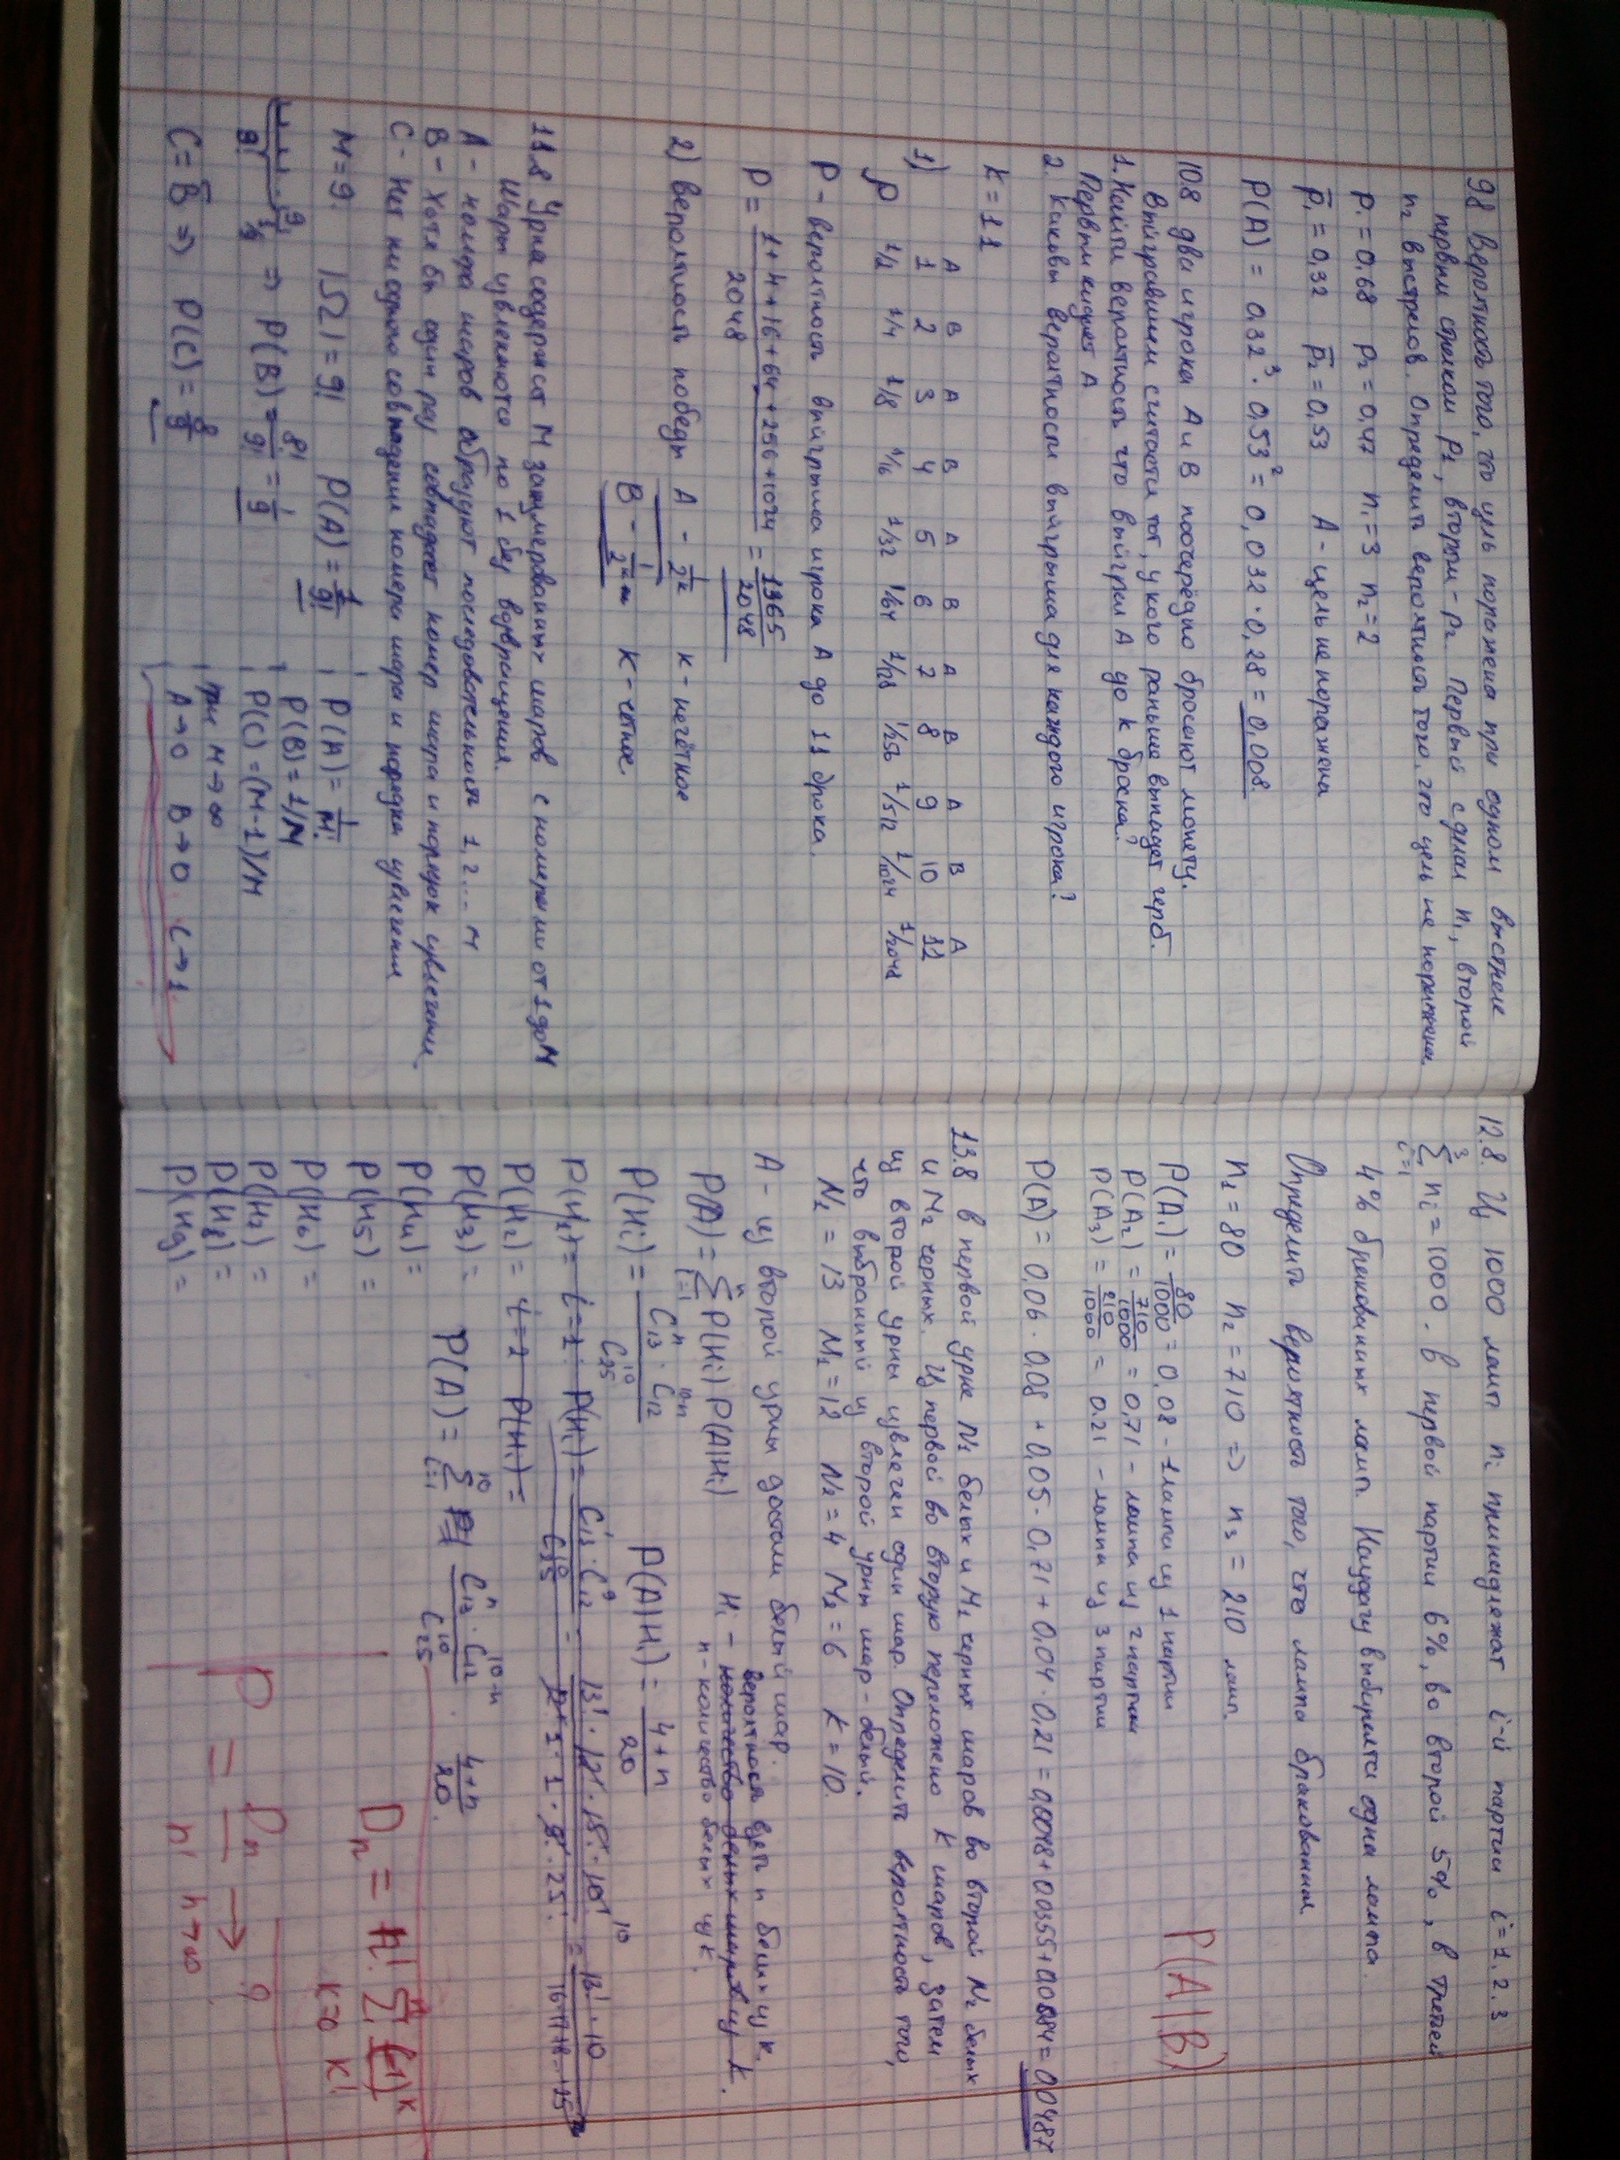 9.8 Вероятность того, что цель поражена при одном выстреле
первым стрелком p₁, вторым – p₂. Первый сделал n₁, второй
n₂ выстрелов. Определить вероятность того, что цель не поражена.
p₁ = 0,68 p₂ = 0,47 n₁ = 3 n₂ = 2
p̅₁ = 0,32 p̅₂ = 0,53 A – цель не поражена
P(A) = 0,32³ · 0,53² = 0,032 · 0,28 = 0,008.
10.8 два игрока A и B поочерёдно бросают монету.
Выигравшим считается тот, у кого раньше выпадет герб.
1. Найти вероятность что выйграл A до k броска?
Первым кидает A
2. Каковы вероятности выйгрыша для каждого игрока?
K = 11
A B A B A B A B A B A
1) 1 2 3 4 5 6 7 8 9 10 11
P 1/2 1/4 1/8 1/16 1/32 1/64 1/128 1/256 1/512 1/1024 1/2048
P – вероятность выйгрыша игрока A до 11 брока.
P = (1+4+16+64+256+1024)/2048 = 1365/2048
2) вероятность победы A – 1/2ᵏ K – нечётное
B – 1/2ᵏ K – четное
11.8 Урна содержит M занумерованных шаров с номерами от 1 до M
Шары извлекаются по 1 без возвращения.
A – номера шаров образуют последовательность 1,2... M
B – Хотя бы один раз совпадает номер шара и порядок извлечения
C – Нет ни одного совпадения номера шара и порядка извлечения
M = 9. |Ω| = 9! P(A) = 1/9! P(A) = 1/M!
⇒ P(B) = 8!/9! = 1/9 P(B) = 1/M
P(C) = (M-1)/M
C = B̅ ⇒ P(C) = 8/9 при M → ∞
A → 0 B → 0 C → 1
12.8. Из 1000 ламп nᵢ принадлежат i-й партии i = 1, 2, 3
∑ᵢ₌₁³ nᵢ = 1000. в первой партии 6%, во второй 5%, в третьей
4% бракованных ламп. Наудачу выбирается одна лампа.
Определить вероятность того, что лампа бракованная
n₁ = 80 n₂ = 710 ⇒ n₃ = 210 ламп.
P(A|B)
P(A₁) = 80/1000 = 0,08 – 1 лампа из 1 партии
P(A₂) = 710/1000 = 0,71 – лампа из 2 партии
P(A₃) = 210/1000 = 0.21 – лампа из 3 партии
P(A) = 0,06 · 0,08 + 0,05 · 0,71 + 0,04 · 0,21 = 0,0048 + 0,0355 + 0,0084 = 0,0487
13.8 в первой урне N₁ белых и M₁ черных шаров во второй N₂ белых
и M₂ черных. Из первой во вторую переложено K шаров, затем
из второй урны извлечен один шар. Определить вероятность того,
что выбранный из второй урны шар – белый.
N₁ = 13 M₁ = 12 N₂ = 4 M₂ = 6 K = 10.
A – из второй урны достали белый шар.
вероятность взять n белых из K.
P(A) = ∑ᵢ₌₁ⁿ P(Hᵢ) P(A|Hᵢ) Hᵢ – количество белых шаров из K.
n – количество белых из K.
P(Hᵢ) = C₁₃ⁿ · C₁₂¹⁰⁻ⁿ / C₂₅¹⁰ P(A|Hᵢ) = (4+n)/20
P(H₁) = i = 1: P(Hᵢ) = C₁₃¹ · C₁₂⁹ / C₂₅¹⁰ = = 13! · 10 / 16·17·18...·25
P(H₂) = i = 2 P(Hᵢ) =
P(H₃) = P(A) = ∑ᵢ₌₁¹⁰ C₁₃ⁿ · C₁₂¹⁰⁻ⁿ / C₂₅¹⁰ · (4+n)/20.
P(H₄) =
P(H₅) =
P(H₆) =
P(H₇) =
P(H₈) =
P(H₉) =
Dₙ = n! ∑ₖ₌₀ⁿ (-1)ᵏ/k!
P = Dₙ/n! → n→∞ ?